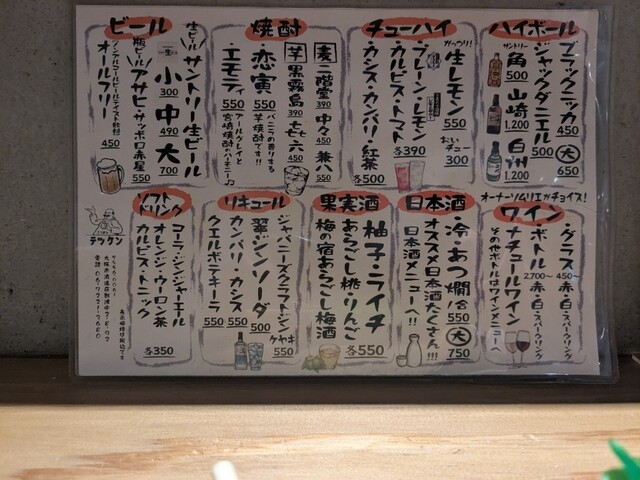 ハイボール
ブラックニッカ 450
大 650
ジャックダニエル 500
サントリー
角 500
山崎 1,200
白州 1,200
チューハイ
がっつり!
生レモン 550
おい
チュー 300
・プレーン・レモン
・カルピス・トマト 各390
・カシス・カンパリ・紅茶 500
焼酎
麦 二階堂 390
中々 450
兼八 550
芋 黒霧島 390
七七六 450
・恋寅 550
バニラの香りする
芋焼酎です!!
・エモティ 550
アールグレイと
宮崎焼酎のハーモニー♪
ビール
生ビール
サントリー生ビール
小 300
中 490
大 700
瓶ビール
アサヒ・サッポロ赤星 550
ノンアルコールビールテイスト飲料
オールフリー 450
オーナーソムリエがチョイス!
ワイン
・グラス 450〜 赤・白・スパークリング
・ボトル 2,700〜 赤・白・スパークリング
ナチュールワイン
その他ボトルはワインメニューへ
日本酒
・冷・あつ燗 1合 550
大 750
オススメ日本酒たくさん!!!
日本酒メニューへ!!
果実酒
柚子・ライチ
あらごし桃・りんご
梅の宿あらごし梅酒
各550
リキュール
ジャパニーズクラフトジン
ケヤキ 550
翠・ジンソーダ 500
カンパリ・カシス 550
クエルボテキーラ 550
ソフト
ドリンク
コーラ・ジンジャーエール
オレンジ・ウーロン茶
カルピス・トニック
各350
テツケン